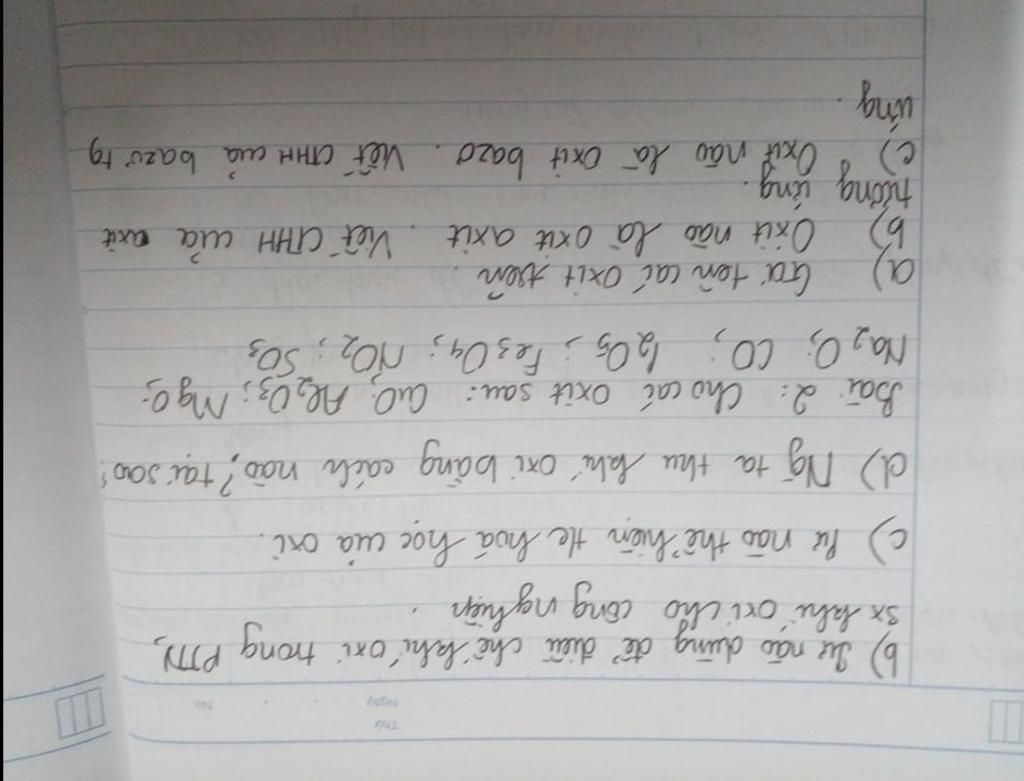 Thứ
Ngày No
b) Pư nào dùng để điều chế khí oxi trong PTN,
sx khí oxi cho công nghiệp.
c) Pư nào thể hiện tc hoá học của oxi.
d) Ng ta thu khí oxi bằng cách nào, tại sao?
Bài 2: Cho các oxit sau: CuO; Al2O3; MgO;
Na2O; CO; P2O5; Fe3O4; NO2; SO3
a) Gọi tên các oxit trên.
b) Oxit nào là oxit axit. Viết CTHH của axit
tương ứng.
c) Oxit nào là oxit bazo. Viết CTHH của bazơ tg
ứng.